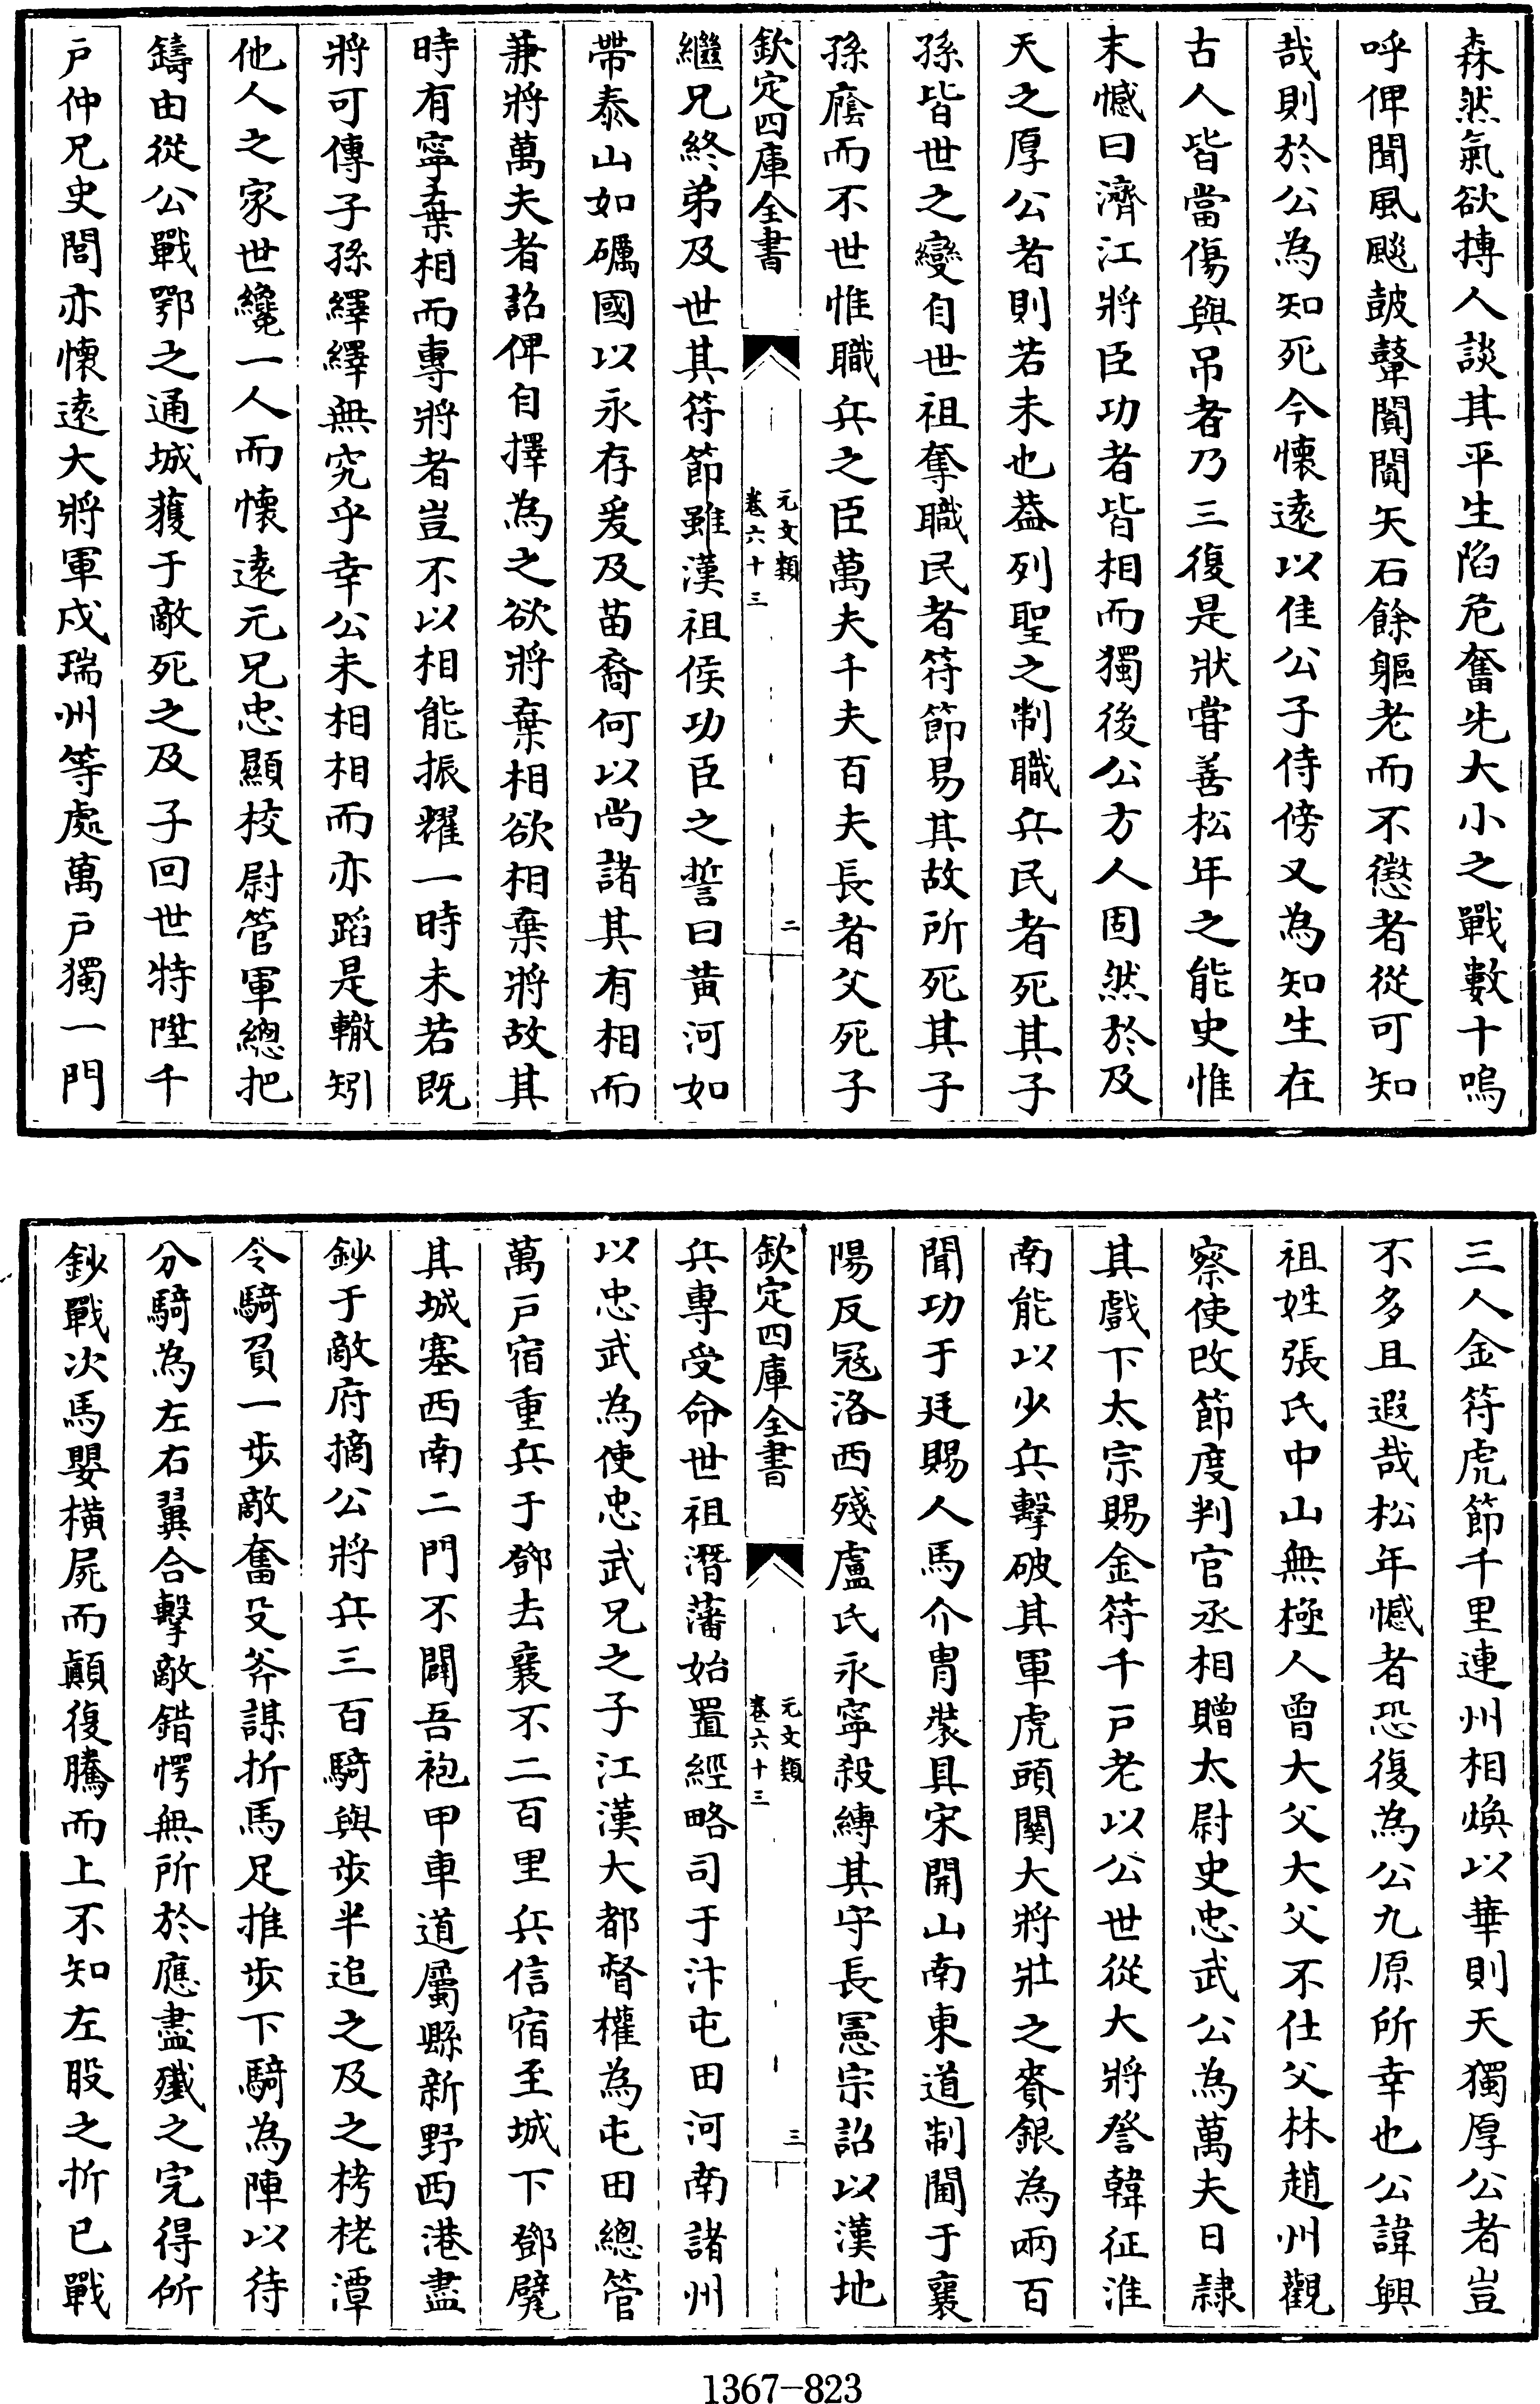 森然氣欲摶人談其平生陷危奮先大小之戰數十嗚
呼俾聞風颷皷鼙闐闐矢石餘軀老而不懲者從可知
哉則於公為知死今懷遠以佳公子侍傍又為知生在
古人皆當傷與吊者乃三復是狀嘗善松年之能史惟
末憾曰濟江將臣功者皆相而獨後公方人固然於及
天之厚公者則若未也葢列聖之制職兵民者死其子
孫皆世之變自世祖奪職民者符節易其故所死其子
孫廕而不世惟職兵之臣萬夫千夫百夫長者父死子
欽定四庫全書
元文類
卷六十三
二
繼兄終弟及世其符節雖漢祖侯功臣之誓曰黃河如
帶泰山如礪國以永存爰及苗裔何以尚諸其有相而
兼將萬夫者詔俾自擇為之欲將棄相欲相棄將故其
時有寧棄相而專將者豈不以相能振耀一時未若既
將可傳子孫繹繹無究乎幸公未相相而亦蹈是轍矧
他人之家世纔一人而懷遠元兄忠顯校尉管軍總把
鑄由從公戰鄂之通城獲于敵死之及子回世特陞千
戶仲兄史閭亦懷遠大將軍戍瑞州等處萬戶獨一門
三人金符虎節千里連州相煥以華則天獨厚公者豈
不多且遐哉松年憾者恐復為公九原所幸也公諱興
祖姓張氏中山無極人曾大父大父不仕父林趙州觀
察使改節度判官丞相贈太尉史忠武公為萬夫日隸
其戲下太宗賜金符千戶老以公世從大將詧韓征淮
南能以少兵擊破其軍虎頭關大將壯之賚銀為兩百
聞功于廷賜人馬介胄裝具宋開山南東道制閫于襄
陽反冦洛西殘盧氏永寧殺縛其守長憲宗詔以漢地
欽定四庫全書
元文類
卷六十三
三
兵專受命世祖潛藩始置經略司于汴屯田河南諸州
以忠武為使忠武兄之子江漢大都督權為屯田總管
萬戶宿重兵于鄧去襄不二百里兵信宿至城下鄧甓
其城塞西南二門不闢吾袍甲車道屬縣新野西港盡
鈔于敵府摘公將兵三百騎與步半追之及之栲栳潭
令騎負一步敵奮殳斧謀折馬足推步下騎為陣以待
分騎為左右翼合擊敵錯愕無所於應盡殲之完得所
鈔戰次馬嬰橫屍而顛復騰而上不知左股之折已戰
1367-823